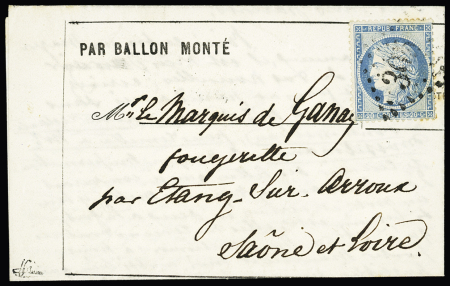 PAR BALLON MONTÉ
REPUB. FRANC.
Mr. le Marquis de Ganay
fougerette
par Etang-Sur-Arroux
Saône et Loire.